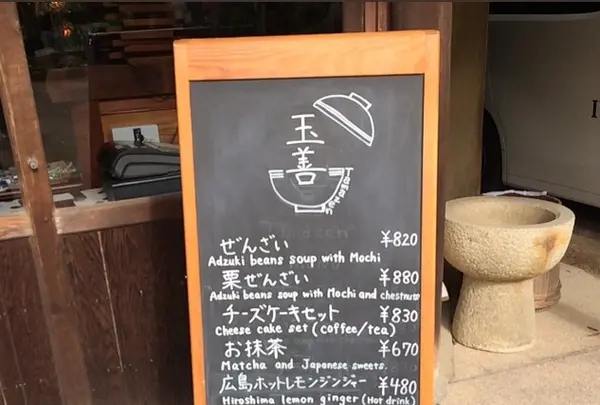 玉善
Tamazen
ぜんざい ¥820
Adzuki beans soup with Mochi
栗ぜんざい ¥880
Adzuki beans soup with Mochi and chestnuts
チーズケーキセット ¥830
Cheese cake set (coffee/tea)
お抹茶 ¥670
Matcha and Japanese sweets.
広島ホットレモンジンジャー ¥480
Hiroshima lemon ginger (Hot drink)